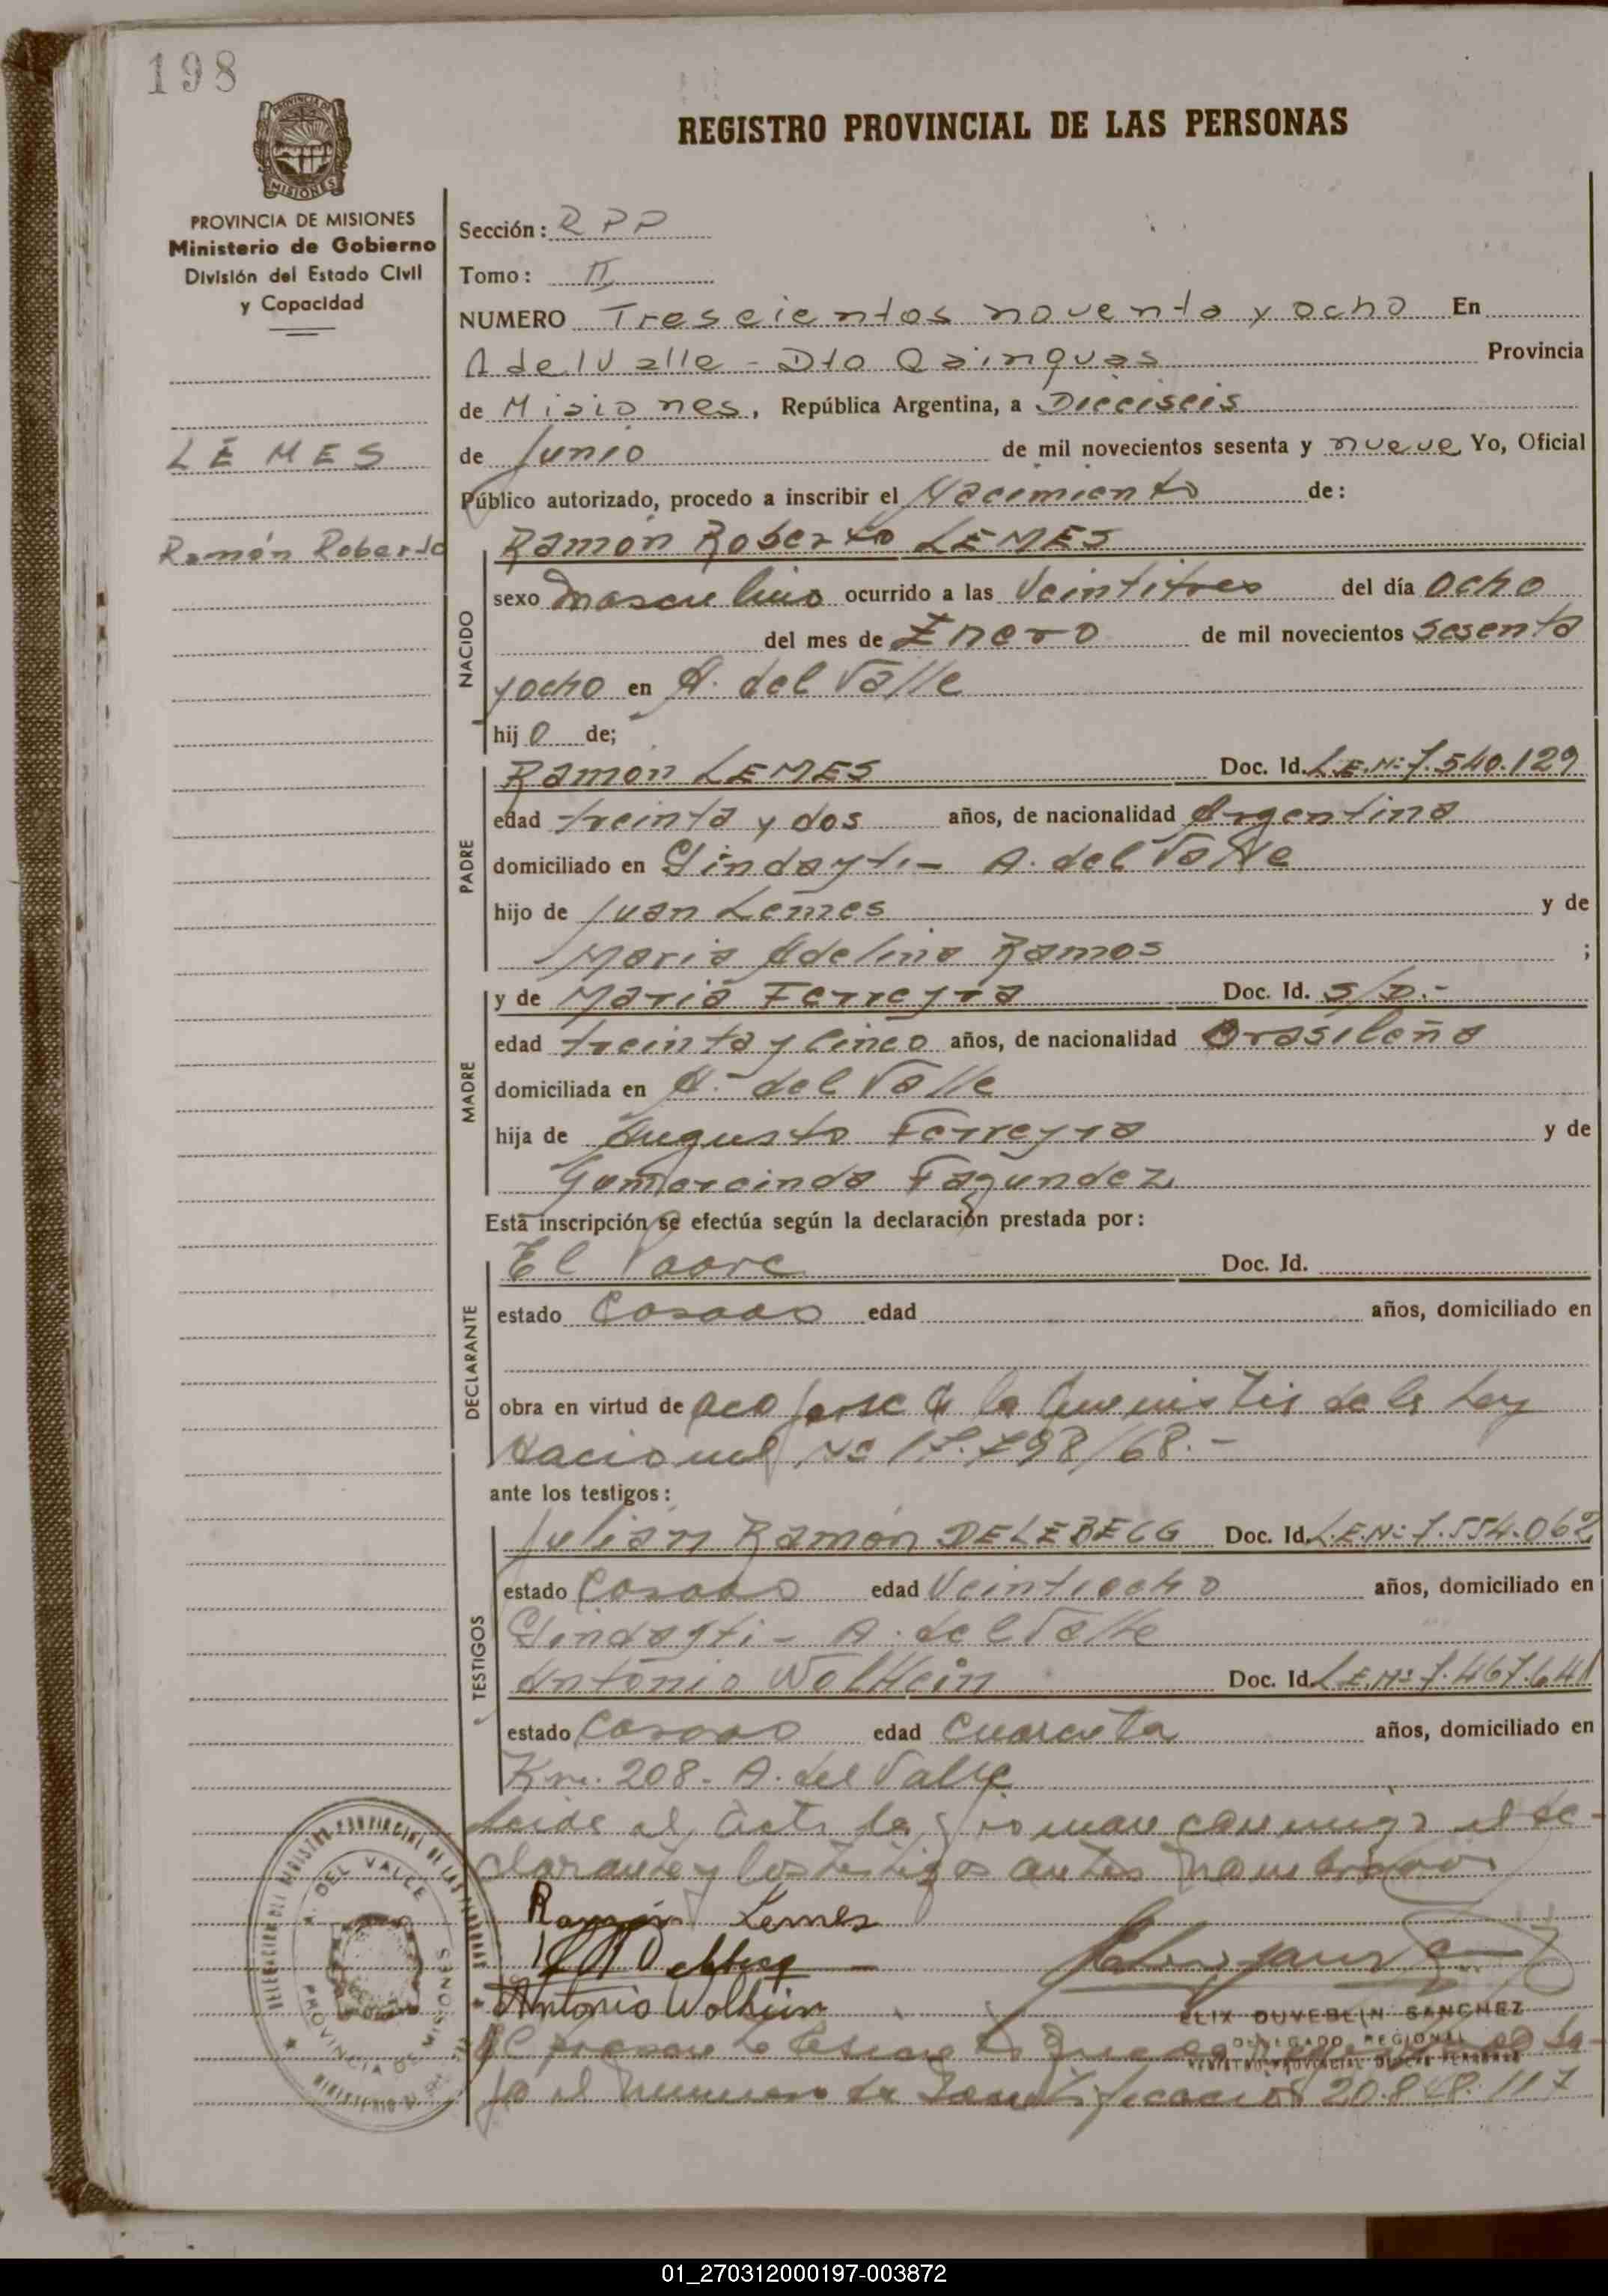 198
PROVINCIA DE
MISIONES
REGISTRO PROVINCIAL DE LAS PERSONAS
PROVINCIA DE MISIONES
Ministerio de Gobierno
División del Estado Civil
y Capacidad
LEMES
Ramón Roberto
Sección: RPP
Tomo: II
NUMERO Trescientos noventa y ocho En
A del Valle - Dto Cainguas Provincia
de Misiones, República Argentina, a Dieciseis
de Junio de mil novecientos sesenta y nueve Yo, Oficial
Público autorizado, procedo a inscribir el Nacimiento de:
Ramón Roberto LEMES
NACIDO
sexo masculino ocurrido a las Veintitres del día Ocho
del mes de Enero de mil novecientos sesenta
y ocho en A. del Valle
hijo de;
PADRE
Ramon LEMES Doc. Id. L.E.Nº 7.540.129
edad treinta y dos años, de nacionalidad Argentina
domiciliado en Gindayti - A. del Valle
hijo de Juan Lemes y de
Maria Adelina Ramos ;
MADRE
y de Maria Ferreyra Doc. Id. S/D.-
edad treinta y cinco años, de nacionalidad Brasileña
domiciliada en A.- del Valle
hija de Augusto Ferreyra y de
Gumercinda Fagundez
Esta inscripción se efectúa según la declaración prestada por:
DECLARANTE
El Padre Doc. Id.
estado Casado edad años, domiciliado en
obra en virtud de acojerse a la Amnistia de la Ley
Nacional Nº 17.798/68.-
ante los testigos:
TESTIGOS
Julián Ramón DELEBECG Doc. Id. L.E.Nº 7.554.062
estado Casado edad Veintiocho años, domiciliado en
Gindayti - A. del Valle
Antonio Wolhein Doc. Id. L.E.Nº 7.467.641
estado Casado edad cuarenta años, domiciliado en
Km. 208 - A. del Valle
leida el Acta la firman conmigo el de-
clarante y los testigos antes nombrados
Ramón Lemes
Antonio Wolhein
DELEGACION DEL REGISTRO PROVINCIAL DE LAS PERSONAS
A. DEL VALLE
PROVINCIA DE MISIONES
ELIX DUVERLIN SANCHEZ
DELEGADO REGIONAL
REGISTRO PROVINCIAL DE LAS PERSONAS
El presente queda ba-
jo el numero de Identificacion 20.8 117
01_270312000197-003872